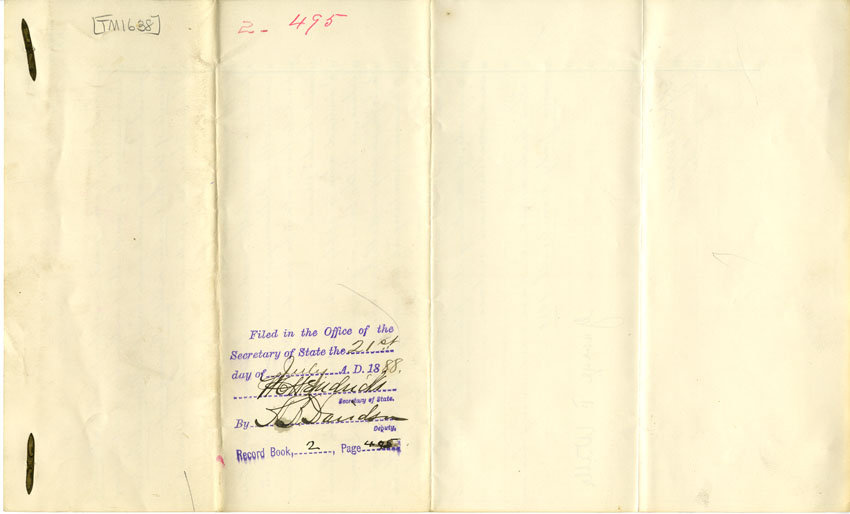 [TM1688]
2 - 495
Filed in the Office of the
Secretary of State the 21st
day of July A. D. 1888.
Hendricks
Secretary of State.
By Davidson
Deputy.
Record Book, 2, Page 495